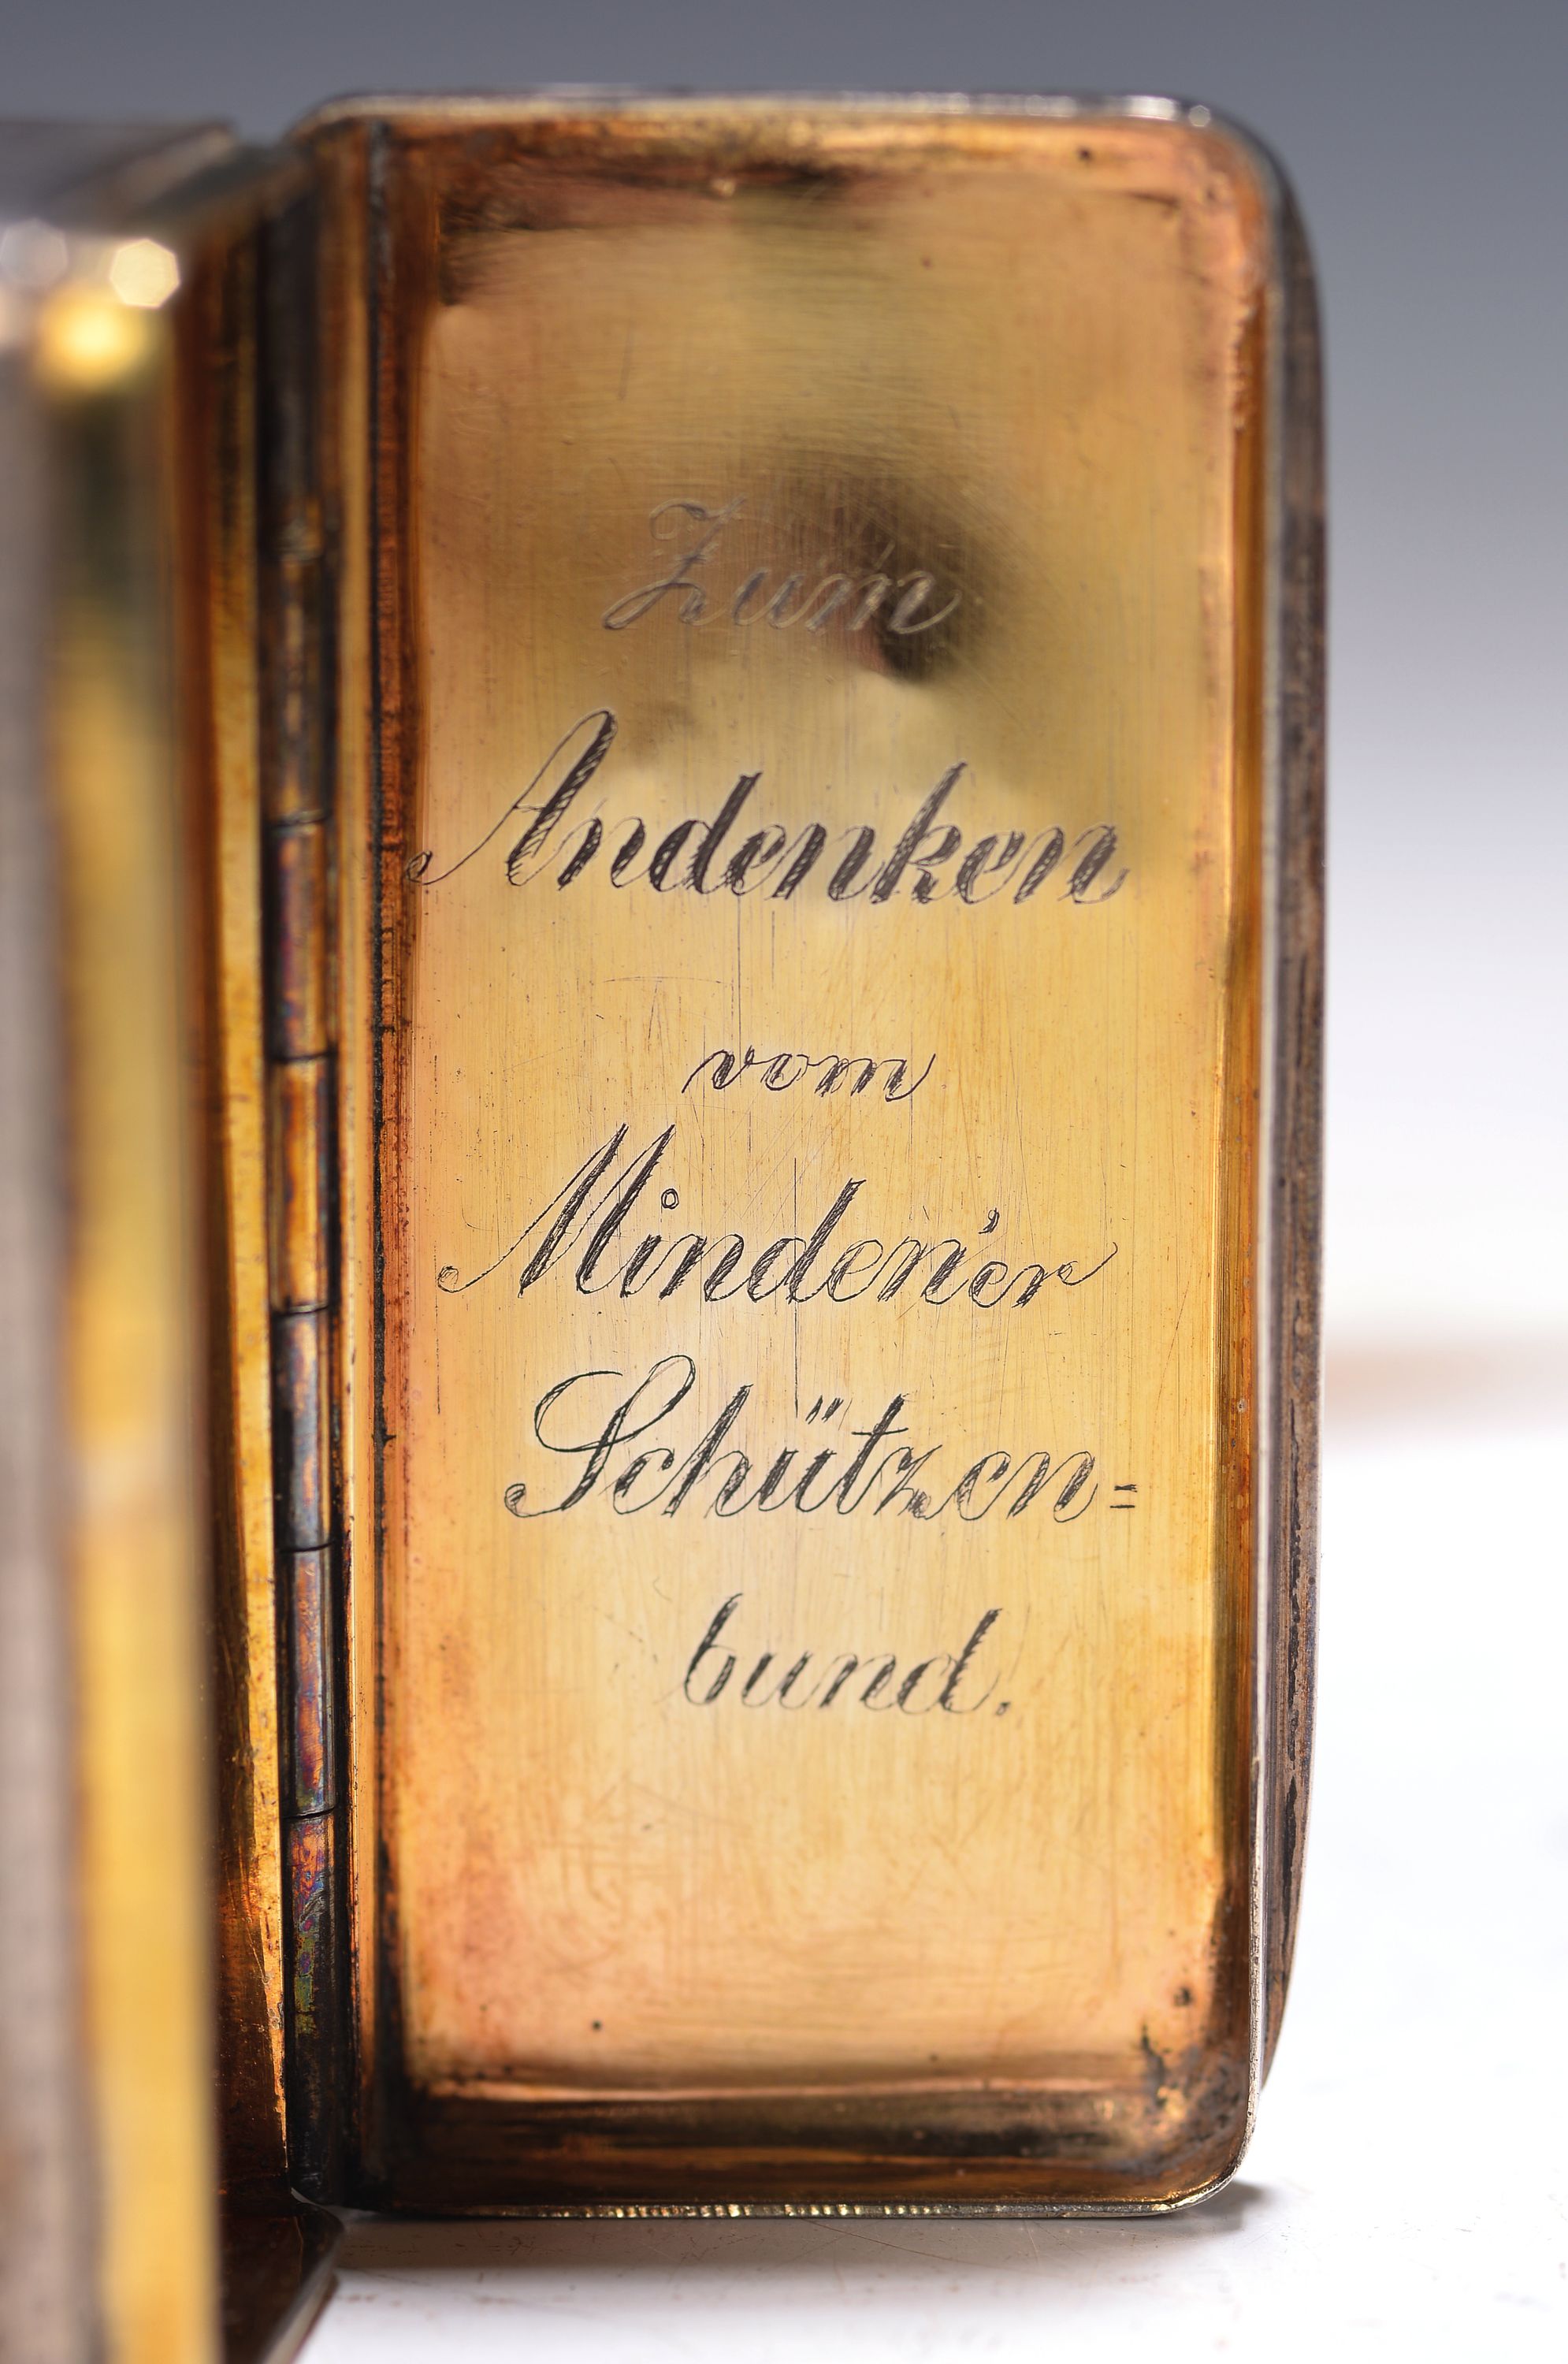 Zum
Andenken
vom
Minden'er
Schützen=
bund.